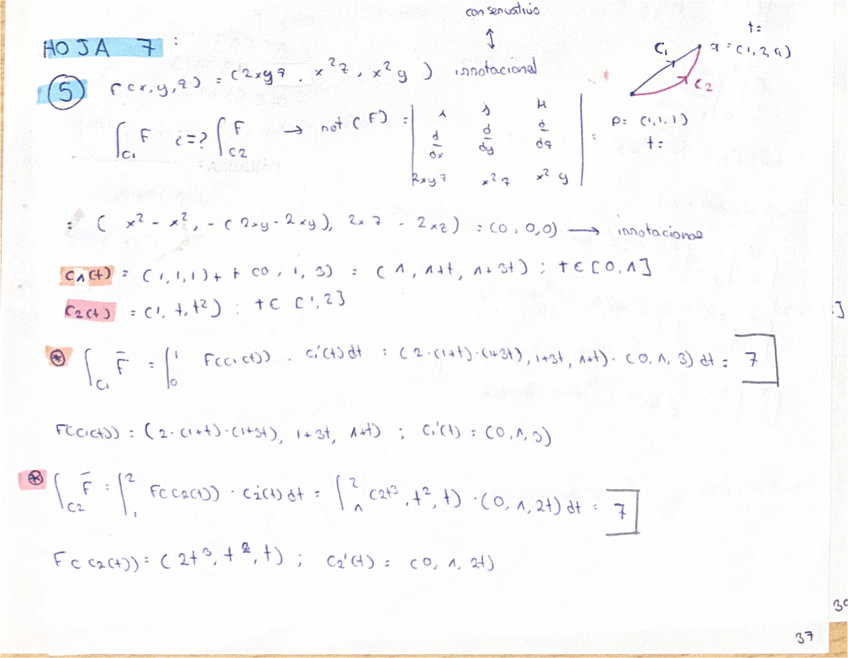 conservativo
↕
HOJA 7 :
⑤ F(x,y,z) = (2xyz, x²z, x²y) irrotacional
t=
C₁ q = (1,2,4)
C₂
p = (1,1,1)
t=
∫_{C1} F ¿=? ∫_{C2} F → rot(F) = | i j k |
| d/dx d/dy d/dz | =
| 2xyz x²z x²y |
= ( x² - x², -(2xy - 2xy), 2xz - 2xz) = (0,0,0) → irrotacional
C1(t) = (1,1,1) + t (0, 1, 3) = (1, 1+t, 1+3t) ; t ∈ [0,1]
C2(t) = (1, t, t²) : t ∈ [1,2]
⊛ ∫_{C1} F̄ = ∫₀¹ F(C1(t)) · C1'(t) dt = (2·(1+t)·(1+3t), 1+3t, 1+t) · (0,1,3) dt = 7
F(C1(t)) = (2·(1+t)·(1+3t), 1+3t, 1+t) ; C1'(t) = (0,1,3)
⊛ ∫_{C2} F̄ = ∫₁² F(C2(t)) · C2'(t) dt = ∫₁² (2t³, t², t) · (0, 1, 2t) dt = 7
F(C2(t)) = (2t³, t², t) ; C2'(t) = (0, 1, 2t)
37